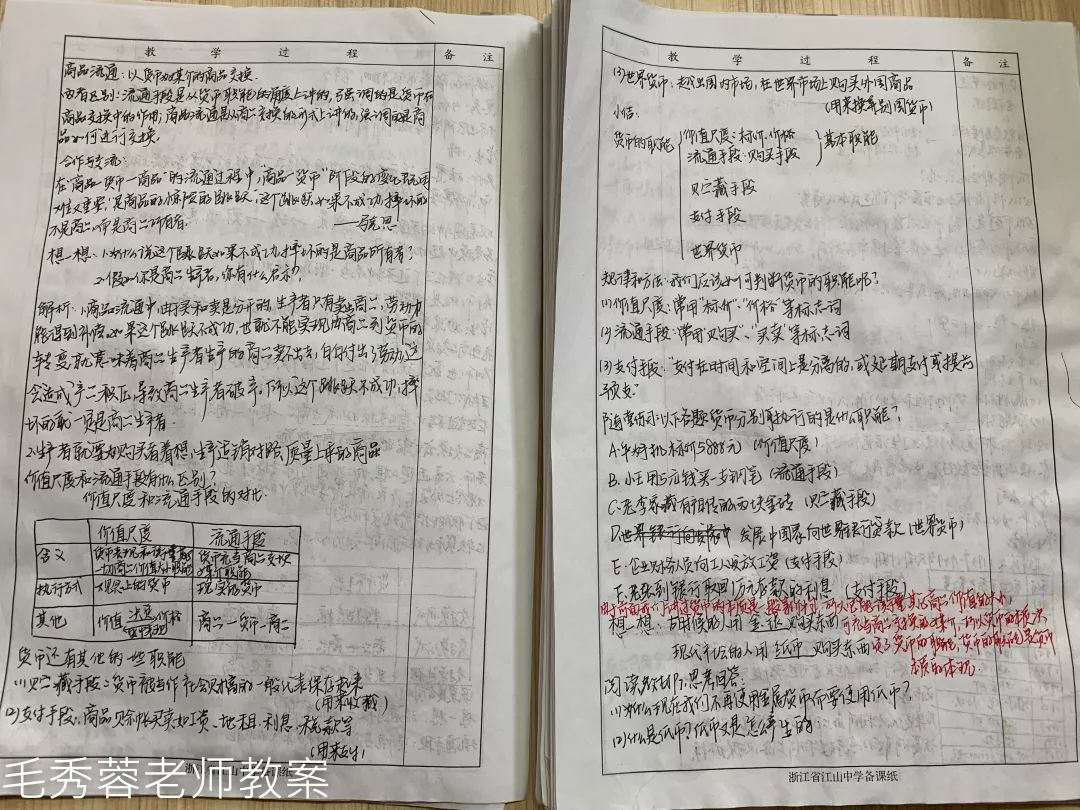 教 学 过 程 备 注
商品流通：以货币为媒介的商品交换.
两者区别：流通手段是从货币职能的角度上讲的,强调的是货币在
商品交换中的作用；商品流通是从商品交换的形式上讲的,强调的是商
品如何进行交换.
合作与交流：
在"商品—货币—商品"的流通过程中,"商品—货币"阶段的变化
"是商品的惊险的跳跃",这个跳跃如果不成功,摔坏的
不是商品,而是商品所有者. ——马克思
想一想：1.为什么说这个跳跃如果不成功,摔坏的是商品所有者?
2.假如你是商品生产者,你有什么启示?
解析：1.商品流通中,由于买和卖是分开的,生产者只有卖出商品,劳动才
能得到补偿,如果这个跳跃不成功,也就不能实现由商品到货币的
转变,就意味着商品生产者生产的商品卖不出去,白白付出了劳动,这
会造成产品积压,导致商品生产者破产,所以这个跳跃不成功,摔
坏的是商品生产者.
2.生产者就要为购买者着想,生产适销对路、质量上乘的商品
价值尺度和流通手段有什么区别?
价值尺度和流通手段的对比.
价值尺度 流通手段
含义 货币表现和衡量其他一切商品价值大小的职能 货币充当商品交换媒介的职能
执行方式 观念上的货币 现实的货币
其他 价值 决定 价格 表现 商品—货币—商品
货币还有其他的一些职能
(1)贮藏手段：货币被当作社会财富的一般代表保存起来
(用来收藏)
(2)支付手段：商品赊帐买卖,如工资、地租、利息、税款等
(用来支付)
浙江省江山中学备课纸
毛秀蓉老师教案
教 学 过 程 备 注
(3)世界货币：越出国内市场,在世界市场上购买外国商品
(用来换算别国货币)
小结：
货币的职能 价值尺度：标价.价格 基本职能
流通手段：购买手段
贮藏手段
支付手段
世界货币
规律和方法：我们应该如何判断货币的职能呢?
(1)价值尺度：常用"标价"、"价格"等标志词
(2)流通手段：常用"购买"、"买卖"等标志词
(3)支付手段："支付在时间和空间上是分离的,或延期支付或提前
预支."
以下各题货币分别执行的是什么职能?
A.手机标价5888元 (价值尺度)
B.小王用5元钱买一支钢笔 (流通手段)
C.老李家藏有祖传的两块金砖 (贮藏手段)
D.发展中国家向世界银行贷款 (世界货币)
E.企业财务人员向工人发放工资 (支付手段)
F.老张到银行取回1万元存款的利息 (支付手段)
想一想：古时候的人用金银购买东西
现代社会的人用纸币购买东西
货币的职能是货币
本质的体现.
阅读教材,思考回答：
(1)为什么现在我们不再使用金属货币而要使用纸币?
(2)什么是纸币?纸币又是怎么产生的
浙江省江山中学备课纸